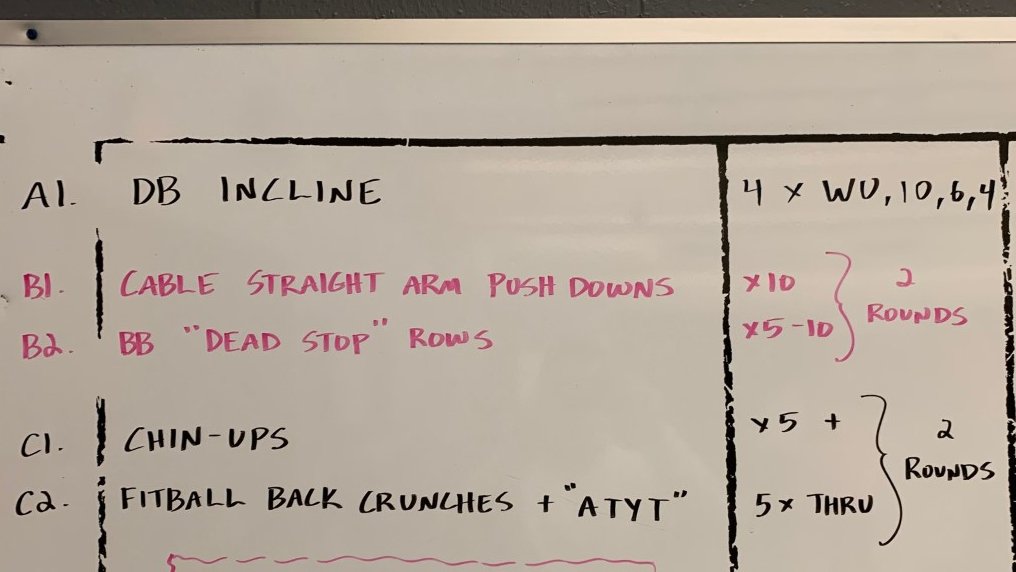 A1. DB INCLINE 4 x WU, 10, 6, 4
B1. CABLE STRAIGHT ARM PUSH DOWNS x10
B2. BB "DEAD STOP" ROWS x5-10
2 ROUNDS
C1. CHIN-UPS x5 +
C2. FITBALL BACK CRUNCHES + "ATYT" 5x THRU
2 ROUNDS